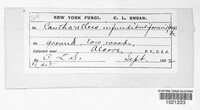 NEW YORK FUNGI. C. L. SHEAR.
Cantharellus infundibuliformis
ground, low woods,
Alcove, N. Y., U. S. A.
C. L. S. Sept. 1892
1021223